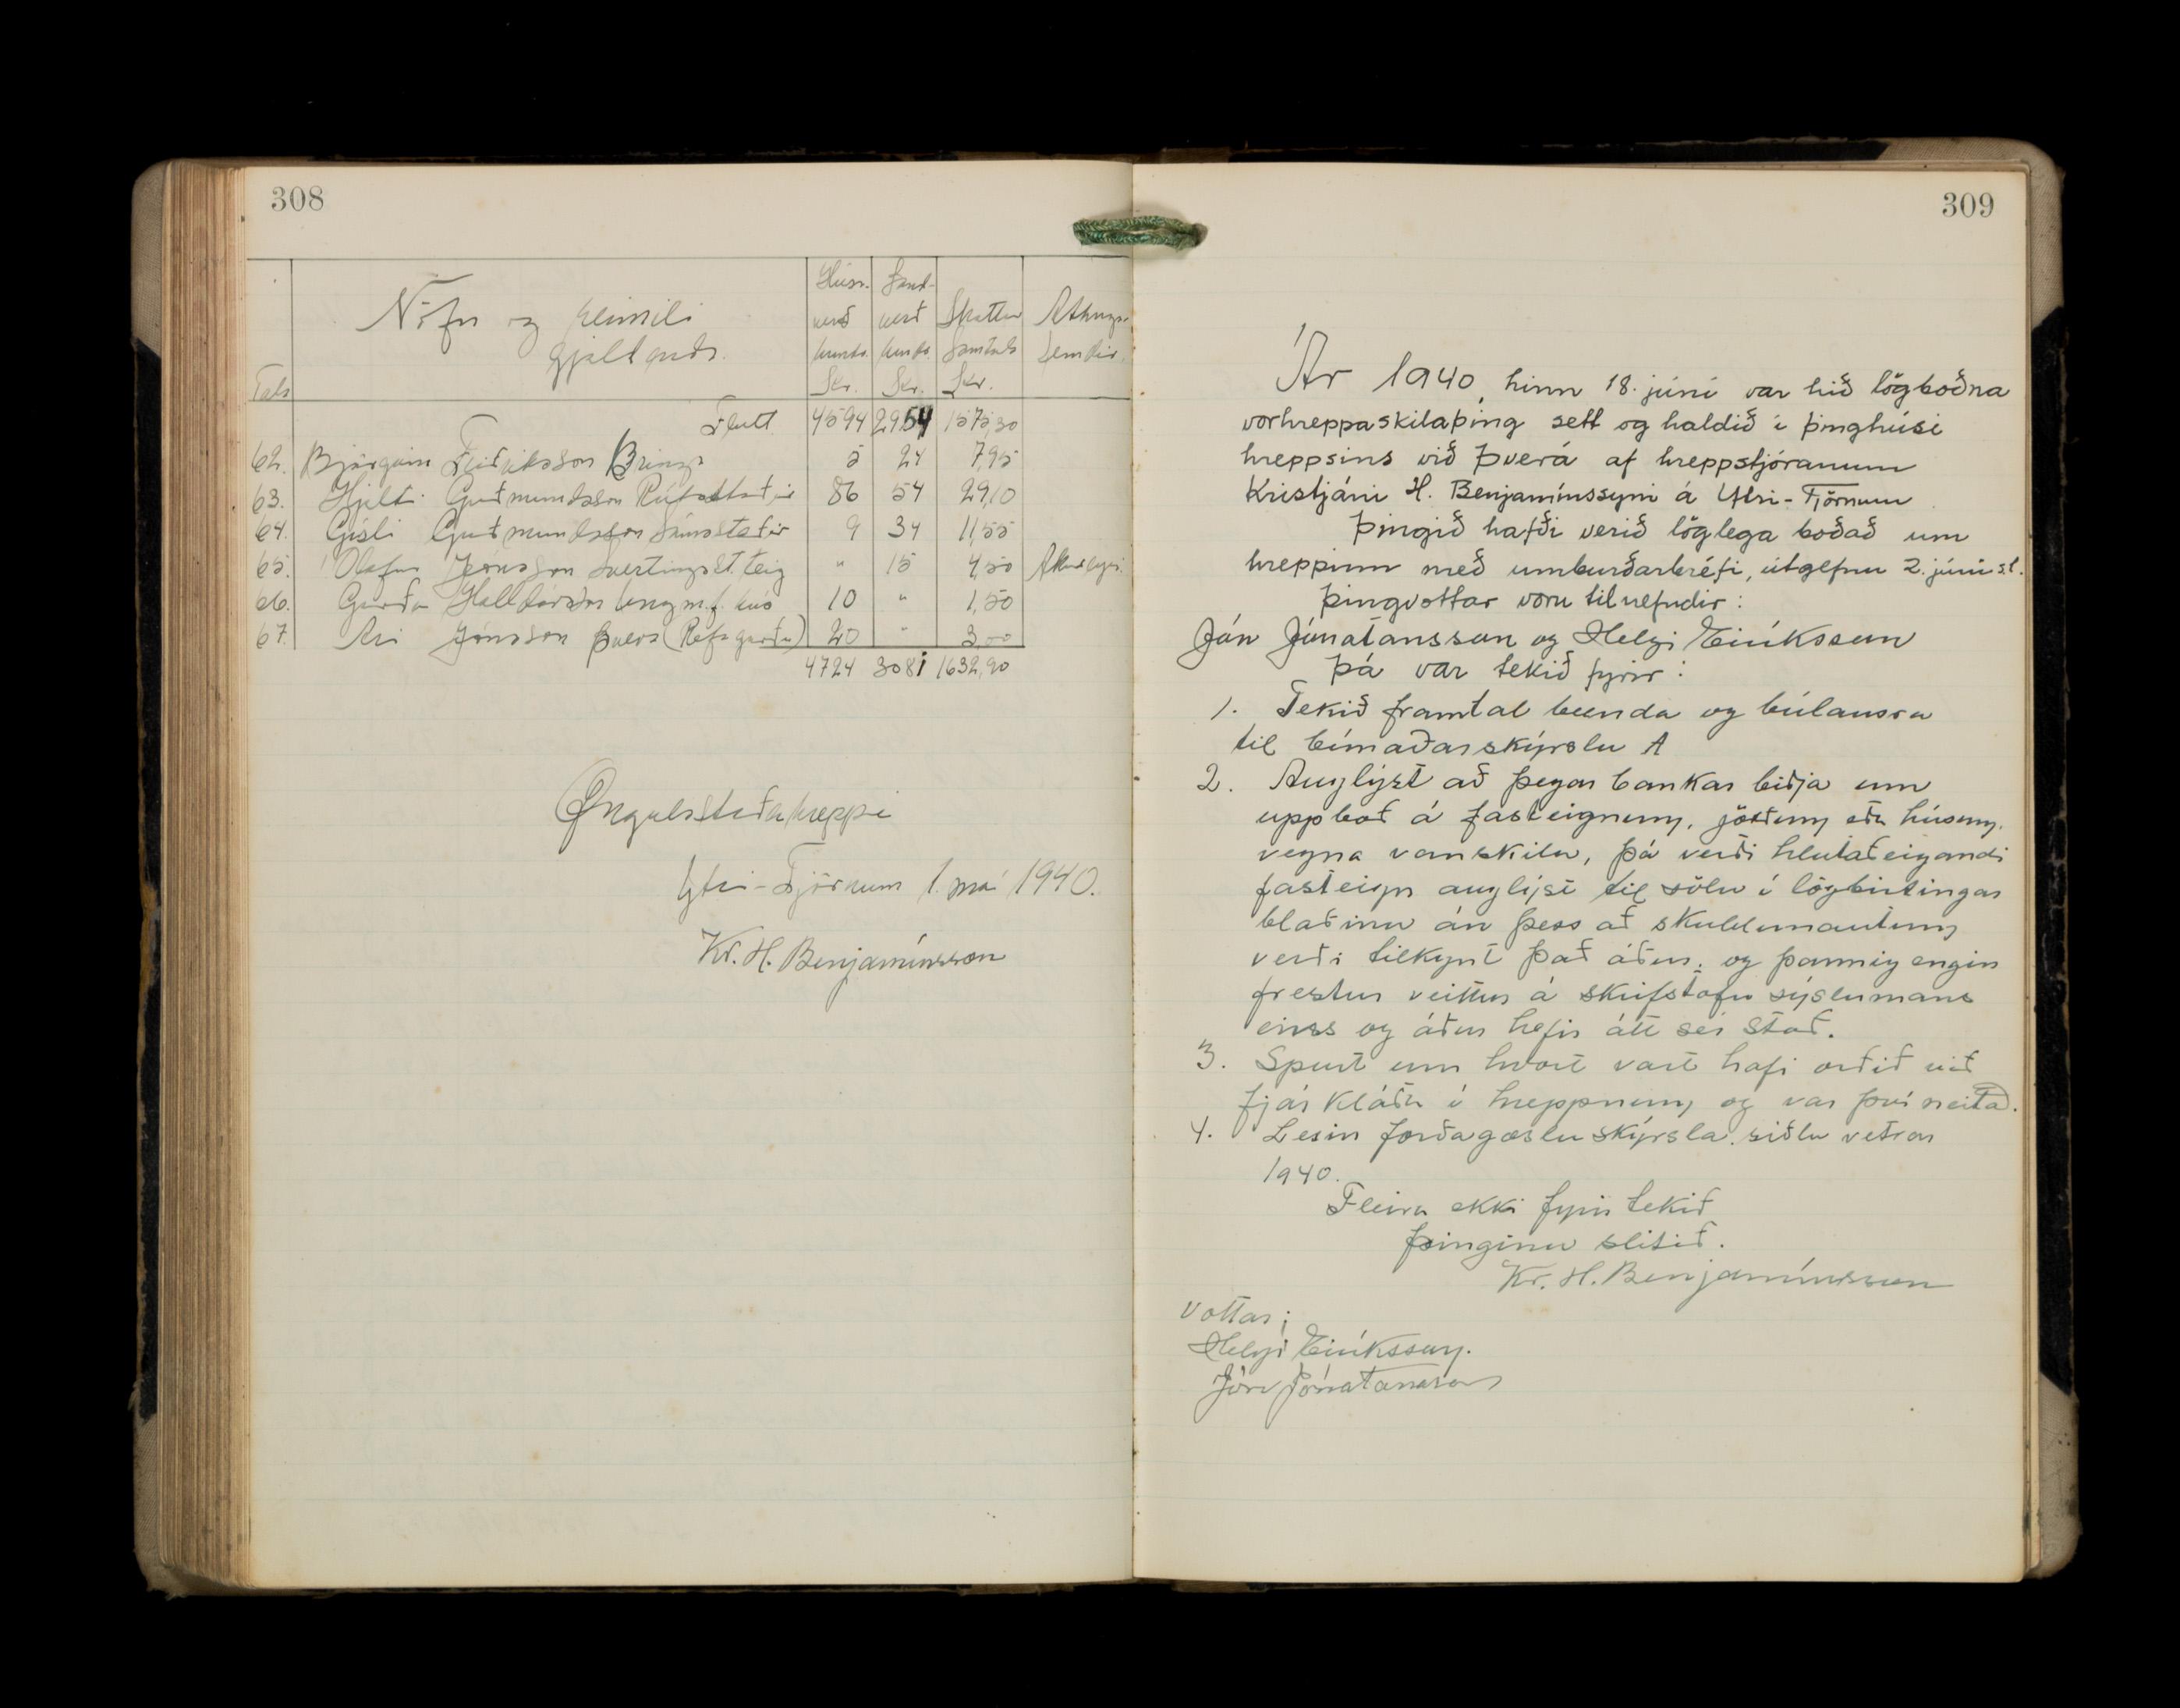 308
Tala
Nöfn og heimili
gjaldenda.
Húsa-
verð
hundr.
kr.
Land-
verð
hundr.
kr.
Skattur
samtals
kr.
Athuga-
semdir.
Flutt 4594 2954 1575,30
62. Björgvin Friðriksson Bringa 5 24 7,95
63. Hjalti Guðmundsson Rútsstaðir 86 54 29,10
64. Gísli Guðmundsson Sámsstaðir 9 34 11,55
65. Ólafur Jónsson Svertingsst. teig " 15 4,50 Akureyri.
66. Garðar Halldórsson ungm.f. hús 10 " 1,50
67. Ari Jónsson Þverá (Refagarður) 20 " 3,00
4724 3081 1632,90
Öngulsstaðahreppi
Ytri-Tjörnum 1. maí 1940.
Kr. H. Benjamínsson
309
Ár 1940, hinn 18. júní var hið lögboðna
vorhreppaskilaþing sett og haldið í þinghúsi
hreppsins við Þverá af hreppstjóranum
Kristjáni H. Benjamínssyni á Ytri-Tjörnum
Þingið hafði verið löglega boðað um
hreppinn með umburðarbréfi, útgefnu 2. júní s.l.
Þingvottar voru tilnefndir:
Jón Jónatansson og Helgi Eiríksson
Þá var tekið fyrir:
1. Tekið framtal bænda og búlausra
til búnaðarskýrslu A
2. Auglýst að þegar bankar biðja um
uppboð á fasteignum, jörðum eða húsum,
vegna vanskila, þá verði hlutaðeigandi
fasteign auglýst til sölu í lögbirtingar
blaðinu án þess að skuldunautum
verði tilkynt það áður, og þannig engin
frestur veittur á skrifstofu sýslumans
eins og áður hefir átt sér stað.
3. Spurt um hvort vart hafi orðið við
fjárkláða í hreppnum, og var því neitað.
4. Lesin forðagæslu skýrsla síðla vetrar
1940.
Fleira ekki fyrir tekið
Þinginu slitið.
Kr. H. Benjamínsson
Vottar;
Helgi Eiríksson.
Jón Jónatansson